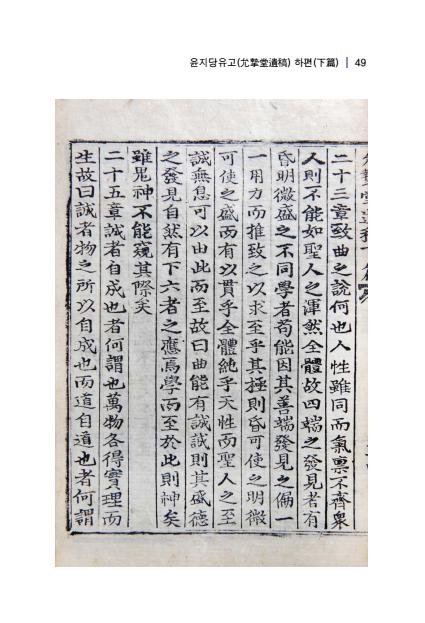 윤지당유고(允摯堂遺稿) 하편(下篇) | 49
二十三章致曲之說何也人性雖同而氣禀不齊衆
人則不能如聖人之渾然全體故四端之發見者有
昏明微盛之不同學者苟能因其善端發見之偏一
一用力而推致之以求至乎其極則昏可使之明微
可使之盛而有以貫乎全體純乎天性而聖人之至
誠無息可以由此而至故曰曲能有誠誠則其盛德
之發見自然有下六者之應焉學而至於此則神矣
雖鬼神不能窺其際矣
二十五章誠者自成也者何謂也萬物各得實理而
生故曰誠者物之所以自成也而道自道也者何謂